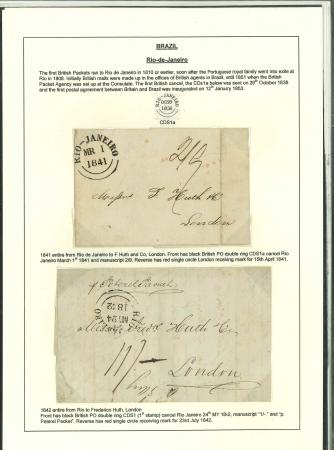 BRAZIL
Rio-de-Janeiro
The first British Packets ran to Rio de Janeiro in 1810 or earlier, soon after the Portuguese royal family went into exile at
Rio in 1808. Initially British mails were made up in the offices of British agents in Brazil, until 1851 when the British
Packet Agency was set up at the Consulate. The first British cancel, the CDs1a below was sent on 20th October 1838
and the first postal agreement between Britain and Brazil was inaugurated on 12th January 1853.
1838
CDS1a
RIO-JANEIRO
MR 1
1841
2/9
Messrs F. Huth & Co
London
1841 entire from Rio de Janeiro to F Huth and Co, London. Front has black British PO double ring CDS1a cancel Rio
Janeiro March 1st 1841 and manuscript 2/9. Reverse has red single circle London receiving mark for 15th April 1841.
p Peterel Packet
MY 24
Huth & Co.
London
1842 entire from Rio to Frederico Huth, London
Front has black British PO double ring CDS1 (1st stamp) cancel Rio Janeiro 24th MY 18-2, manuscript "1/-" and "p.
Peterel Packet". Reverse has red single circle receiving mark for 23rd July 1842.